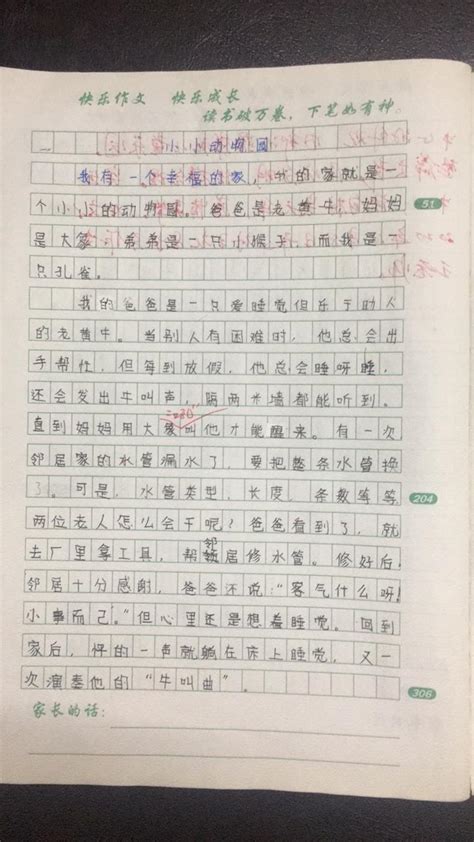 快乐作文 快乐成长
读书破万卷，下笔如有神。
小小动物园
我有一个幸福的家，我的家就是一
个小小的动物园。爸爸是老黄牛，妈妈
51
是大象，弟弟是一只小猴子，而我是一
只孔雀。
我的爸爸是一只爱睡觉但乐于助人
的老黄牛。当别人有困难时，他总会出
手帮忙，但每到放假，他总会睡呀睡，
还会发出牛叫声，隔两米墙都能听到。
直到妈妈用大象叫他才能醒来。有一次
邻居家的水管漏水了，要把整条水管换
了。可是，水管类型、长度、条数等等
204
两位老人怎么会干呢？爸爸看到了，就
去厂里拿工具，帮邻居修水管。修好后，
邻居十分感谢，爸爸还说：“客气什么呀！
小事而己。”但心里还是想着睡觉。回到
家后，怦的一声就躺在床上睡觉，又一
次演奏他的“牛叫曲”。
306
家长的话：